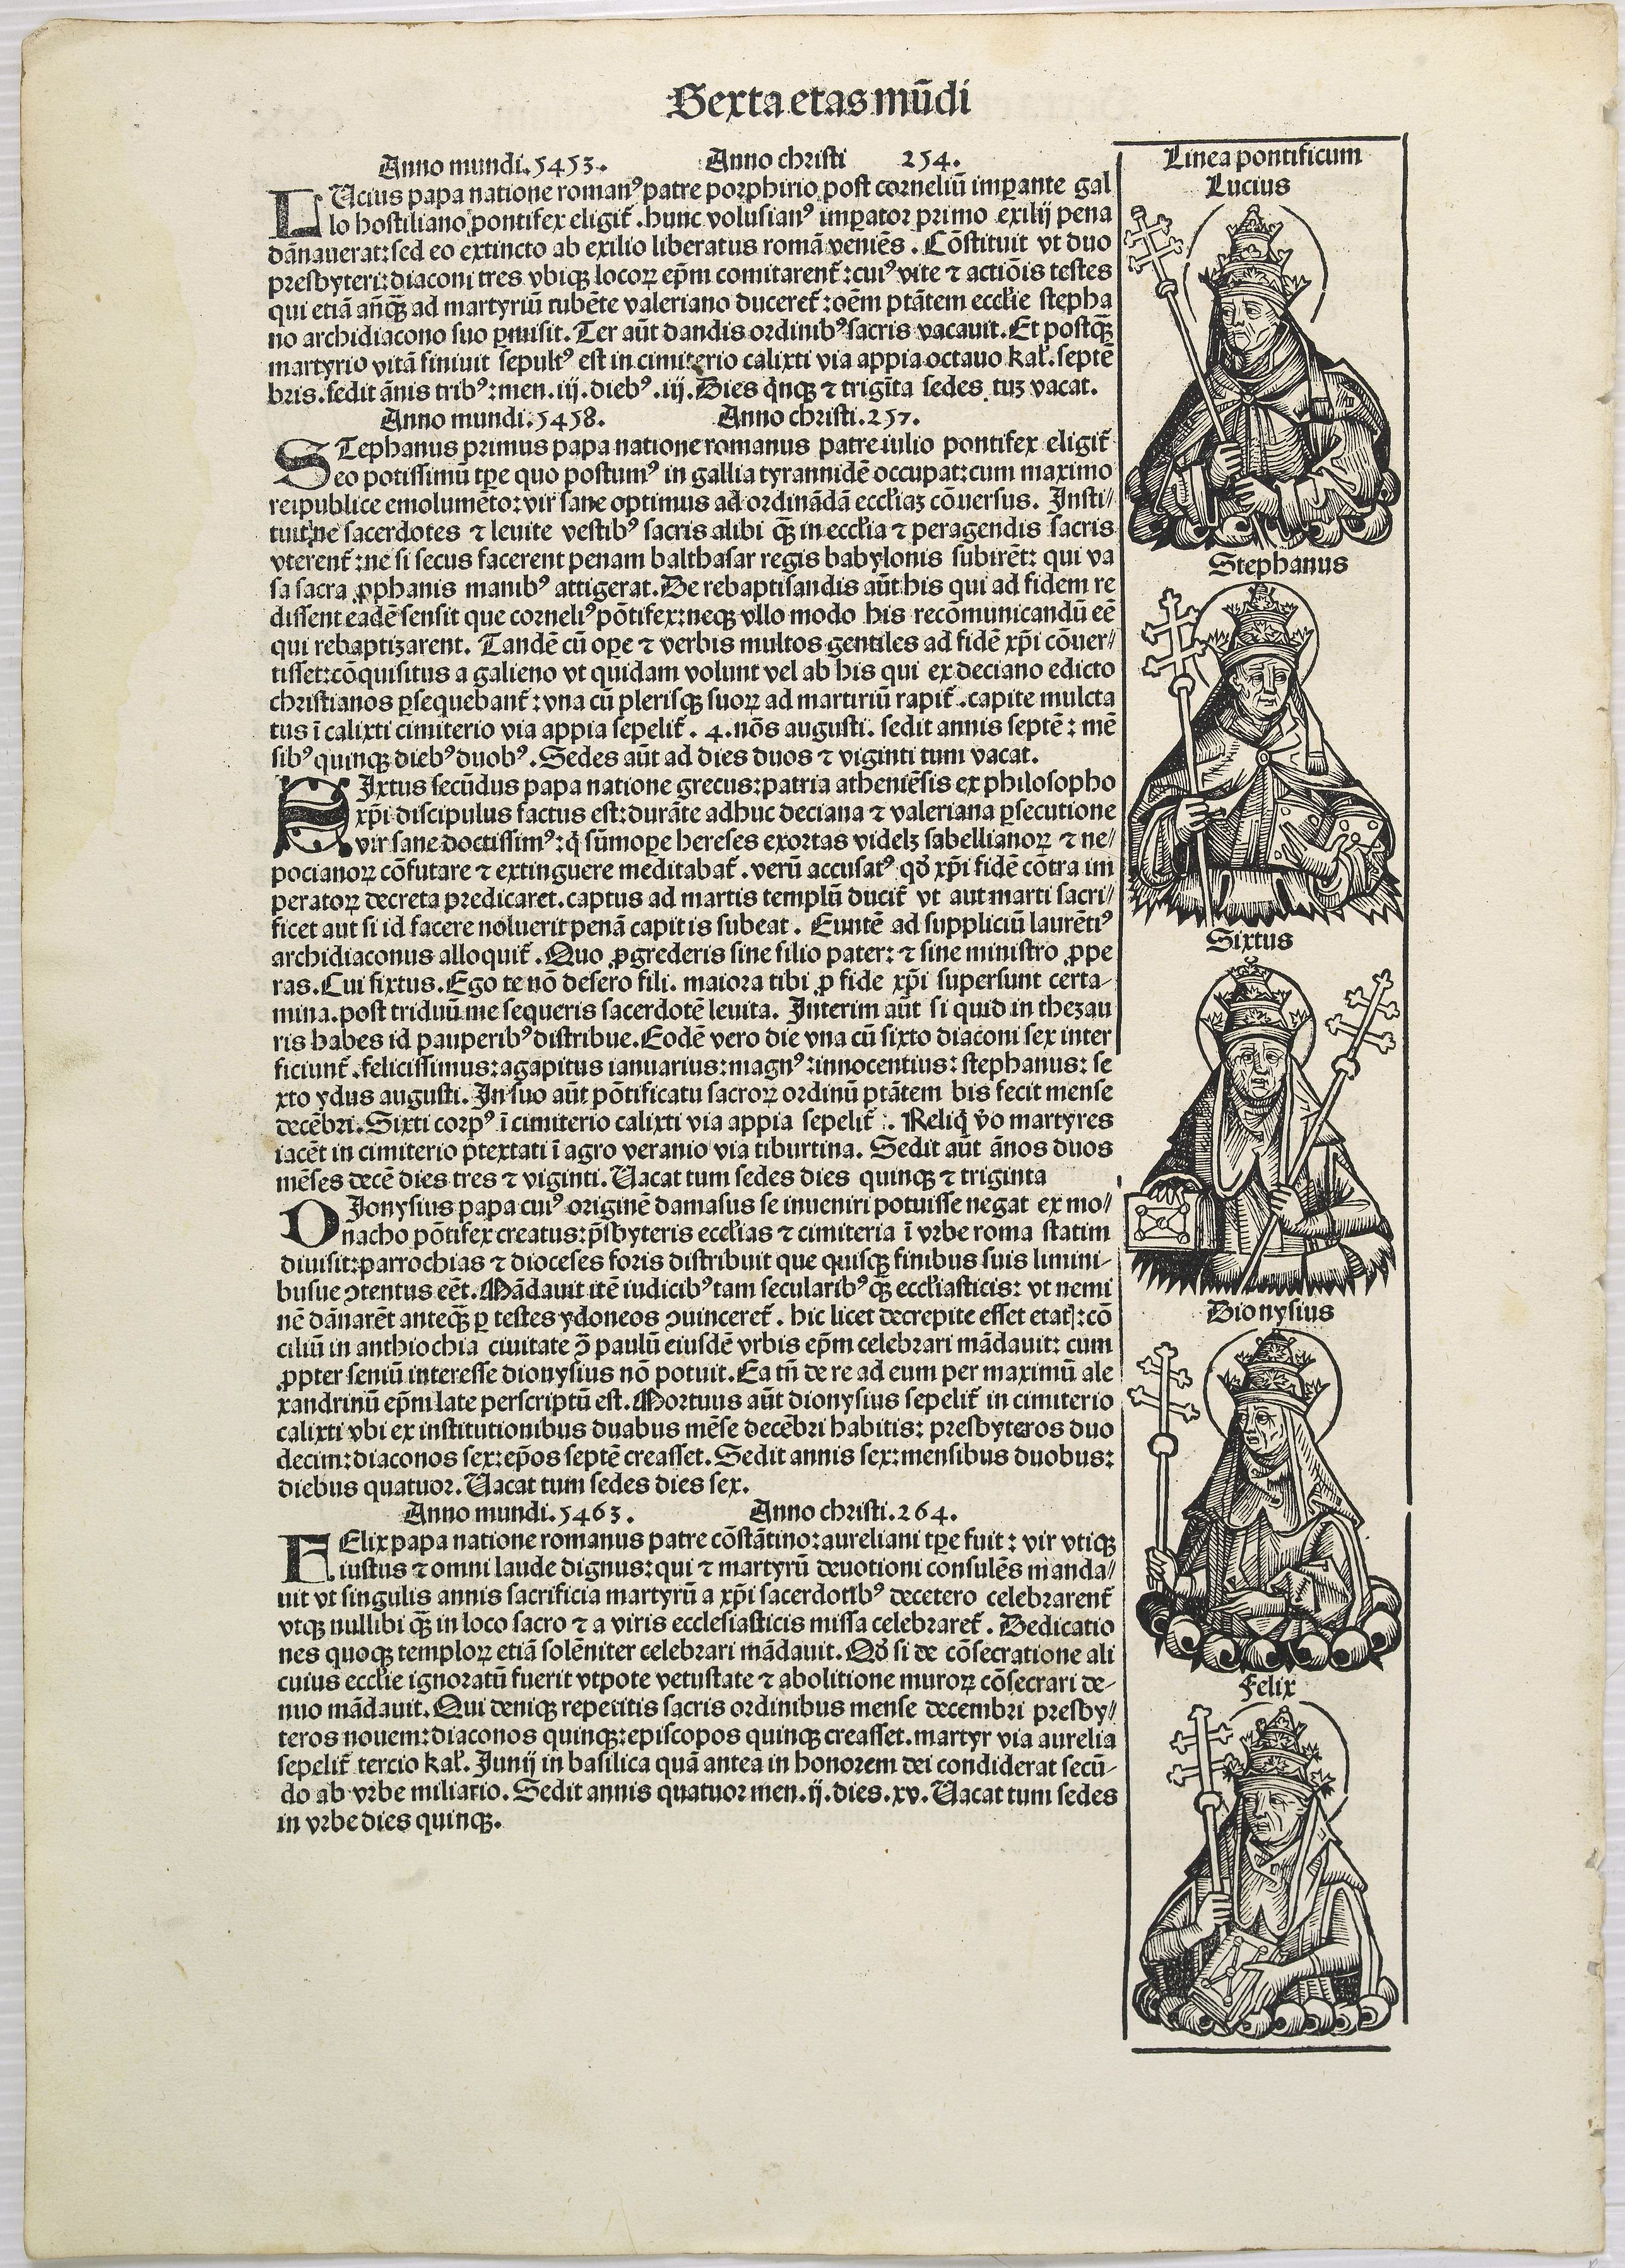 Sexta etas mūdi
Anno mundi.5453. Anno christi 254.
LUcius papa natione romanꝰ patre porphirio post corneliū imꝑante gal
lo hostiliano pontifex eligit̄. hunc volusianꝰ imꝑator primo exilij pena
dānauerat: sed eo extincto ab exilio liberatus romā veniēs. Cōstituit vt duo
presbyteri: diaconi tres vbiqꝫ locoꝝ ep̄m comitarent̄: cuiꝰ vite ⁊ actiōis testes
qui etiā anq̄ꝫ ad martyriū iubēte valeriano duceret̄: oēm ptātem eccl̄ie stepha
no archidiacono suo ꝑmisit. Ter aūt dandis ordinibꝰ sacris vacauit. Et postq̄ꝫ
martyrio vitā finiuit sepultꝰ est in cimiterio calixti via appia octauo kal̄. septē
bris. sedit ānis tribꝰ: men. iij. diebꝰ. iij. Dies q̇nqꝫ ⁊ trigīta sedes tuꝫ vacat.
Anno mundi.5458. Anno christi.257.
STephanus primus papa natione romanus patre iulio pontifex eligit̄
eo potissimū tꝑe quo postumꝰ in gallia tyrannidē occupat: cum maximo
reipublice emolumēto: vir sane optimus ad ordinādā eccl̄iaꝫ cōuersus. Insti⸗
tuit ne sacerdotes ⁊ leuite vestibꝰ sacris alibi q̄ꝫ in eccl̄ia ⁊ peragendis sacris
vterent̄: ne si secus facerent penam balthasar regis babylonis subirēt: qui va
sa sacra ꝓphanis manibꝰ attigerat. De rebaptisandis aūt his qui ad fidem re
dissent eadē sensit que corneliꝰ pōtifex: neqꝫ vllo modo his recōmunicandū eē
qui rebaptizarent. Tandē cū oꝑe ⁊ verbis multos gentiles ad fidē xp̄i cōuer⸗
tisset: cōquisitus a galieno vt quidam volunt vel ab his qui ex deciano edicto
christianos ꝑsequebant̄: vna cū plerisqꝫ suoꝝ ad martiriū rapit̄. capite mulcta
tus ī calixti cimiterio via appia sepelit̄. 4. nōs augusti. sedit annis septē: mē
sibꝰ quinqꝫ diebꝰ duobꝰ. Sedes aūt ad dies duos ⁊ viginti tum vacat.
SIxtus secūdus papa natione grecus: patria atheniēsis ex philosopho
xp̄i discipulus factus est: durāte adhuc deciana ⁊ valeriana ꝑsecutione
vir sane doctissimꝰ: q̇ sūmoꝑe hereses exortas videlꝫ sabellianoꝝ ⁊ ne⸗
pocianoꝝ cōfutare ⁊ extinguere meditabat̄. verū accusatꝰ qd̓ xp̄i fidē cōtra im
peratoꝝ decreta predicaret. captus ad martis templū ducit̄ vt aut marti sacri⸗
ficet aut si id facere noluerit penā capitis subeat. Euntē ad suppliciū laurētiꝰ
archidiaconus alloquit̄. Quo ꝓgrederis sine filio pater: ⁊ sine ministro ꝓpe
ras. Cui sixtus. Ego te nō desero fili. maiora tibi ꝓ fide xp̄i supersunt certa⸗
mina. post triduū me sequeris sacerdotē leuita. Interim aūt si quid in thezau
ris habes id pauperibꝰ distribue. Eodē vero die vna cū sixto diaconi sex inter
ficiunt̄. felicissimus: agapitus ianuarius: magnꝰ: innocentius: stephanus: se
xto ydus augusti. In suo aūt pōtificatu sacroꝝ ordinū ptātem bis fecit mense
decēbri. Sixti corpꝰ ī cimiterio calixti via appia sepelit̄ :. Reliq̇ v̓o martyres
iacēt in cimiterio ptextati ī agro veranio via tiburtina. Sedit aūt ānos duos
mēses decē dies tres ⁊ viginti. Uacat tum sedes dies quinqꝫ ⁊ triginta
DIonysius papa cuiꝰ originē damasus se inueniri potuisse negat ex mo⸗
nacho pōtifex creatus: p̄sbyteris eccl̄ias ⁊ cimiteria ī vrbe roma statim
diuisit: parrochias ⁊ dioceses foris distribuit que quisqꝫ finibus suis limini⸗
busue ↄtentus eēt. Mādauit itē iudicibꝰ tam secularibꝰ q̄ꝫ eccl̄iasticis: vt nemi
nē dānarēt anteq̄ꝫ ꝑ testes ydoneos ↄuinceret̄. hic licet decrepite esset etatꝭ: cō
ciliū in anthiochia ciuitate ↄ̄ paulū eiusdē vrbis ep̄m celebrari mādauit: cum
ꝓpter seniū interesse dionysius nō potuit. Ea tn̄ de re ad eum per maximū ale
xandrinū ep̄m late perscriptū est. Mortuus aūt dionysius sepelit̄ in cimiterio
calixti vbi ex institutionibus duabus mēse decēbri habitis: presbyteros duo
decim: diaconos sex: ep̄os septē creasset. Sedit annis sex: mensibus duobus:
diebus quatuor. Uacat tum sedes dies sex.
Anno mundi.5463. Anno christi.264.
FElix papa natione romanus patre cōstātino: aureliani tꝑe fuit: vir vtiqꝫ
iustus ⁊ omni laude dignus: qui ⁊ martyrū deuotioni consulēs manda⸗
uit vt singulis annis sacrificia martyrū a xp̄i sacerdotibꝰ decetero celebrarent̄
vtqꝫ nullibi q̄ꝫ in loco sacro ⁊ a viris ecclesiasticis missa celebraret̄. Dedicatio
nes quoqꝫ temploꝝ etiā solēniter celebrari mādauit. Qd̓ si de cōsecratione ali
cuius eccl̄ie ignoratū fuerit vtpote vetustate ⁊ abolitione muroꝝ cōsecrari de⸗
nuo mādauit. Qui deniqꝫ repetitis sacris ordinibus mense decembri presby⸗
teros nouem: diaconos quinqꝫ: episcopos quinqꝫ creasset. martyr via aurelia
sepelit̄ tercio kal̄. Junij in basilica quā antea in honorem dei condiderat secū⸗
do ab vrbe miliario. Sedit annis quatuor men. ij. dies. xv. Uacat tum sedes
in vrbe dies quinqꝫ.
Linea pontificum
Lucius
Stephanus
Sixtus
Dionysius
Felix